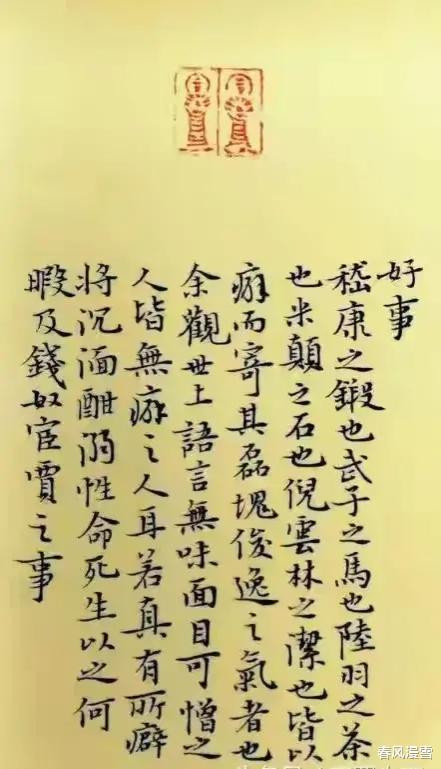 好事
嵇康之鍛也武子之馬也陸羽之茶
也米顛之石也倪雲林之潔也皆以
癖而寄其磊塊俊逸之氣者也
余觀世上語言無味面目可憎之
人皆無癖之人耳若真有所癖
將沉湎酣溺性命死生以之何
暇及錢奴宦賈之事
春风漫雪